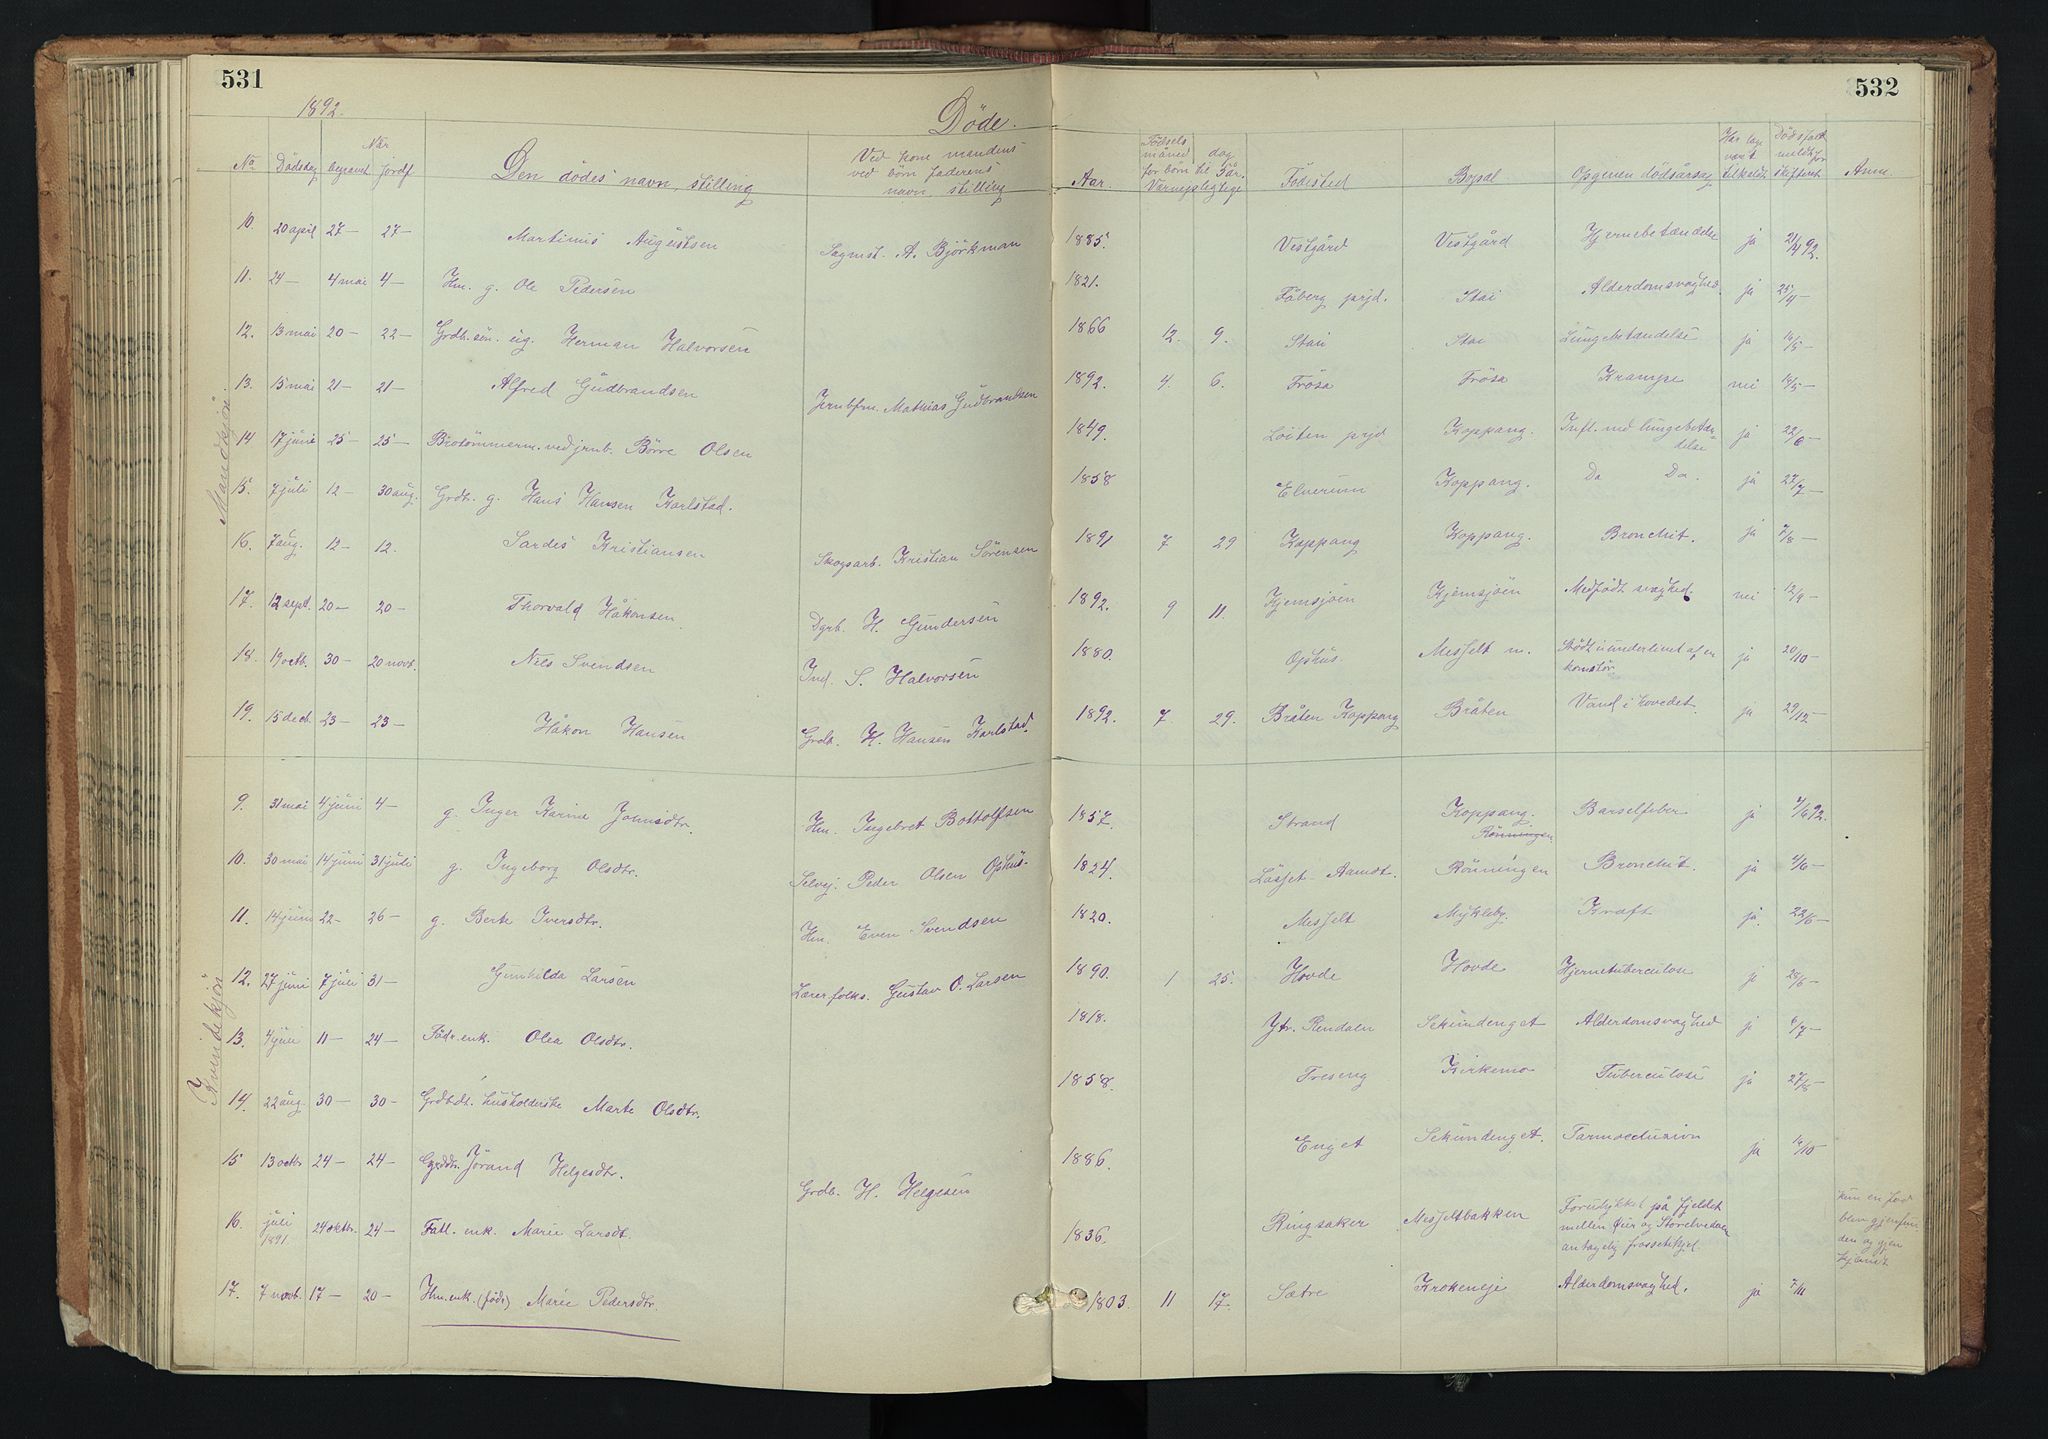 531
532
1892.
Döde.
No Dödsdag begravet Når jordf. Den dödes navn, stilling Ved kone mandens ved börn faderens navn, stilling Aar. Födsels måned dag for börn til 1 år. Værnepligtige Födested Bopæl Opgiven dödsårsag Har læge været tilkaldt Dödsfald meldt for skifteret Anm.
Mandkjön
10. 20 april 27 — 27 — Martinus Augustsen Sagmst. A. Björkman 1885. Vestgård Vestgård Hjernebetændelse ja 21/4 92.
11. 24 — 4 mai 4 — Hm. g. Ole Pedersen 1821. Fåberg prjd. Stai Alderdomsvaghed. ja 25/4 —
12. 13 mai 20 — 22 — Grdb. sön. ug. Herman Halvorsen 1866 12. 9. Stai Stai Lungebetændelse ja 16/5 —
13. 15 mai 21 — 21 — Alfred Gudbrandsen Jernbfm. Mathias Gudbrandsen 1892. 4. 6. Frösa Frösa Krampe nei 18/5 —
14 17 juni 25 — 25 — Brotömmerm. ved jrnb. Börre Olsen 1849. Löiten prjd Koppang. Infl. med lungebetændelse ja 22/6 —
15. 7 juli 12 — 30 aug. Grdb. g. Hans Hansen Karlstad. 1858 Elverum Koppang. Do Do. ja 27/7 —
16. 7 aug. 12 — 12. Sardes Kristiansen Skogsarb. Kristian Sörensen 1891 7 29 Koppang Koppang. Bronchit. ja 7/8 —
17. 12 sept. 20 — 20 — Thorvald Håkonsen Dgrb. H. Gundersen 1892. 9 11. Kjemsjöen Kjemsjöen Medfödt svaghed. nei 12/9 —
18. 19 octb. 30 — 20 novb. Nils Svendsen Ind. S. Halvorsen 1880. Ophus. Messelt m. Stödt i underlivet af en ja 20/10 —
19. 15 dect. 23 — 23 — Håkon Hansen Grdb. H. Hansen Karlstad. 1892. 7. 29. Bråten Koppang Bråten Vand i hovedet. ja 29/12 —
Kvindekjön
9. 31 mai 4 juni 4 — g. Inger Karine Johnsdtr. Hm. Ingebret Bottolfsen 1857. Strand Koppang. Rönningen Barselfeber ja 4/6 92.
10. 30 mai 14 juni 31 juli g. Ingeborg Olsdtr. Selvej. Peder Olsen Ophus- 1824. Låsset - Aamdt. Rönningen Bronchit. ja 4/6 —
11. 14 juni 22 — 26 — g. Berte Iversdtr. Hm. Even Svendsen 1820. Messelt Mykleby. Kræft ja. 22/6 —
12. 27 juni 7 juli 31 — Gunhilda Larsen Lærer folks. Gustav O. Larsen 1890. 1 25. Hovde Hovde Hjernetuberculose ja 28/6 —
13. 4 juli 11 — 24 — Föder. enk. Olea Olsdtr. 1818. Ytr. Rendalen Sekundenget Alderdomsvaghed ja 6/7 —
14. 22 aug. 30 — 30 — Grdb.dt. husholderske Marte Olsdtr. 1858. Treseng Kirkemo Tuberculose ja 27/8 —
15 13 octbr 24 — 24 — Grddtr. Jörand Helgesdtr. Grdb. H. Helgesen 1886. Enget Sekundenget. Tarmocclusion ja 14/10 —
16. juli 1891. 24 oktbr. 24 — Fatl. enk. Marie Larsdt. 1836. Ringsaker Messeltbakken Forulykket på fjeldet mellem Åur og Storelvedalen antagelig frossetihjel. kun en fod blev gjenfunden og gjenkjendt
17. 7 novb. 17 — 20 — Hm. enk. (föder) Marie Pedersdtr. 1803. 11 17. Sætre Krokeneje Alderdomsvaghed. ja 7/11